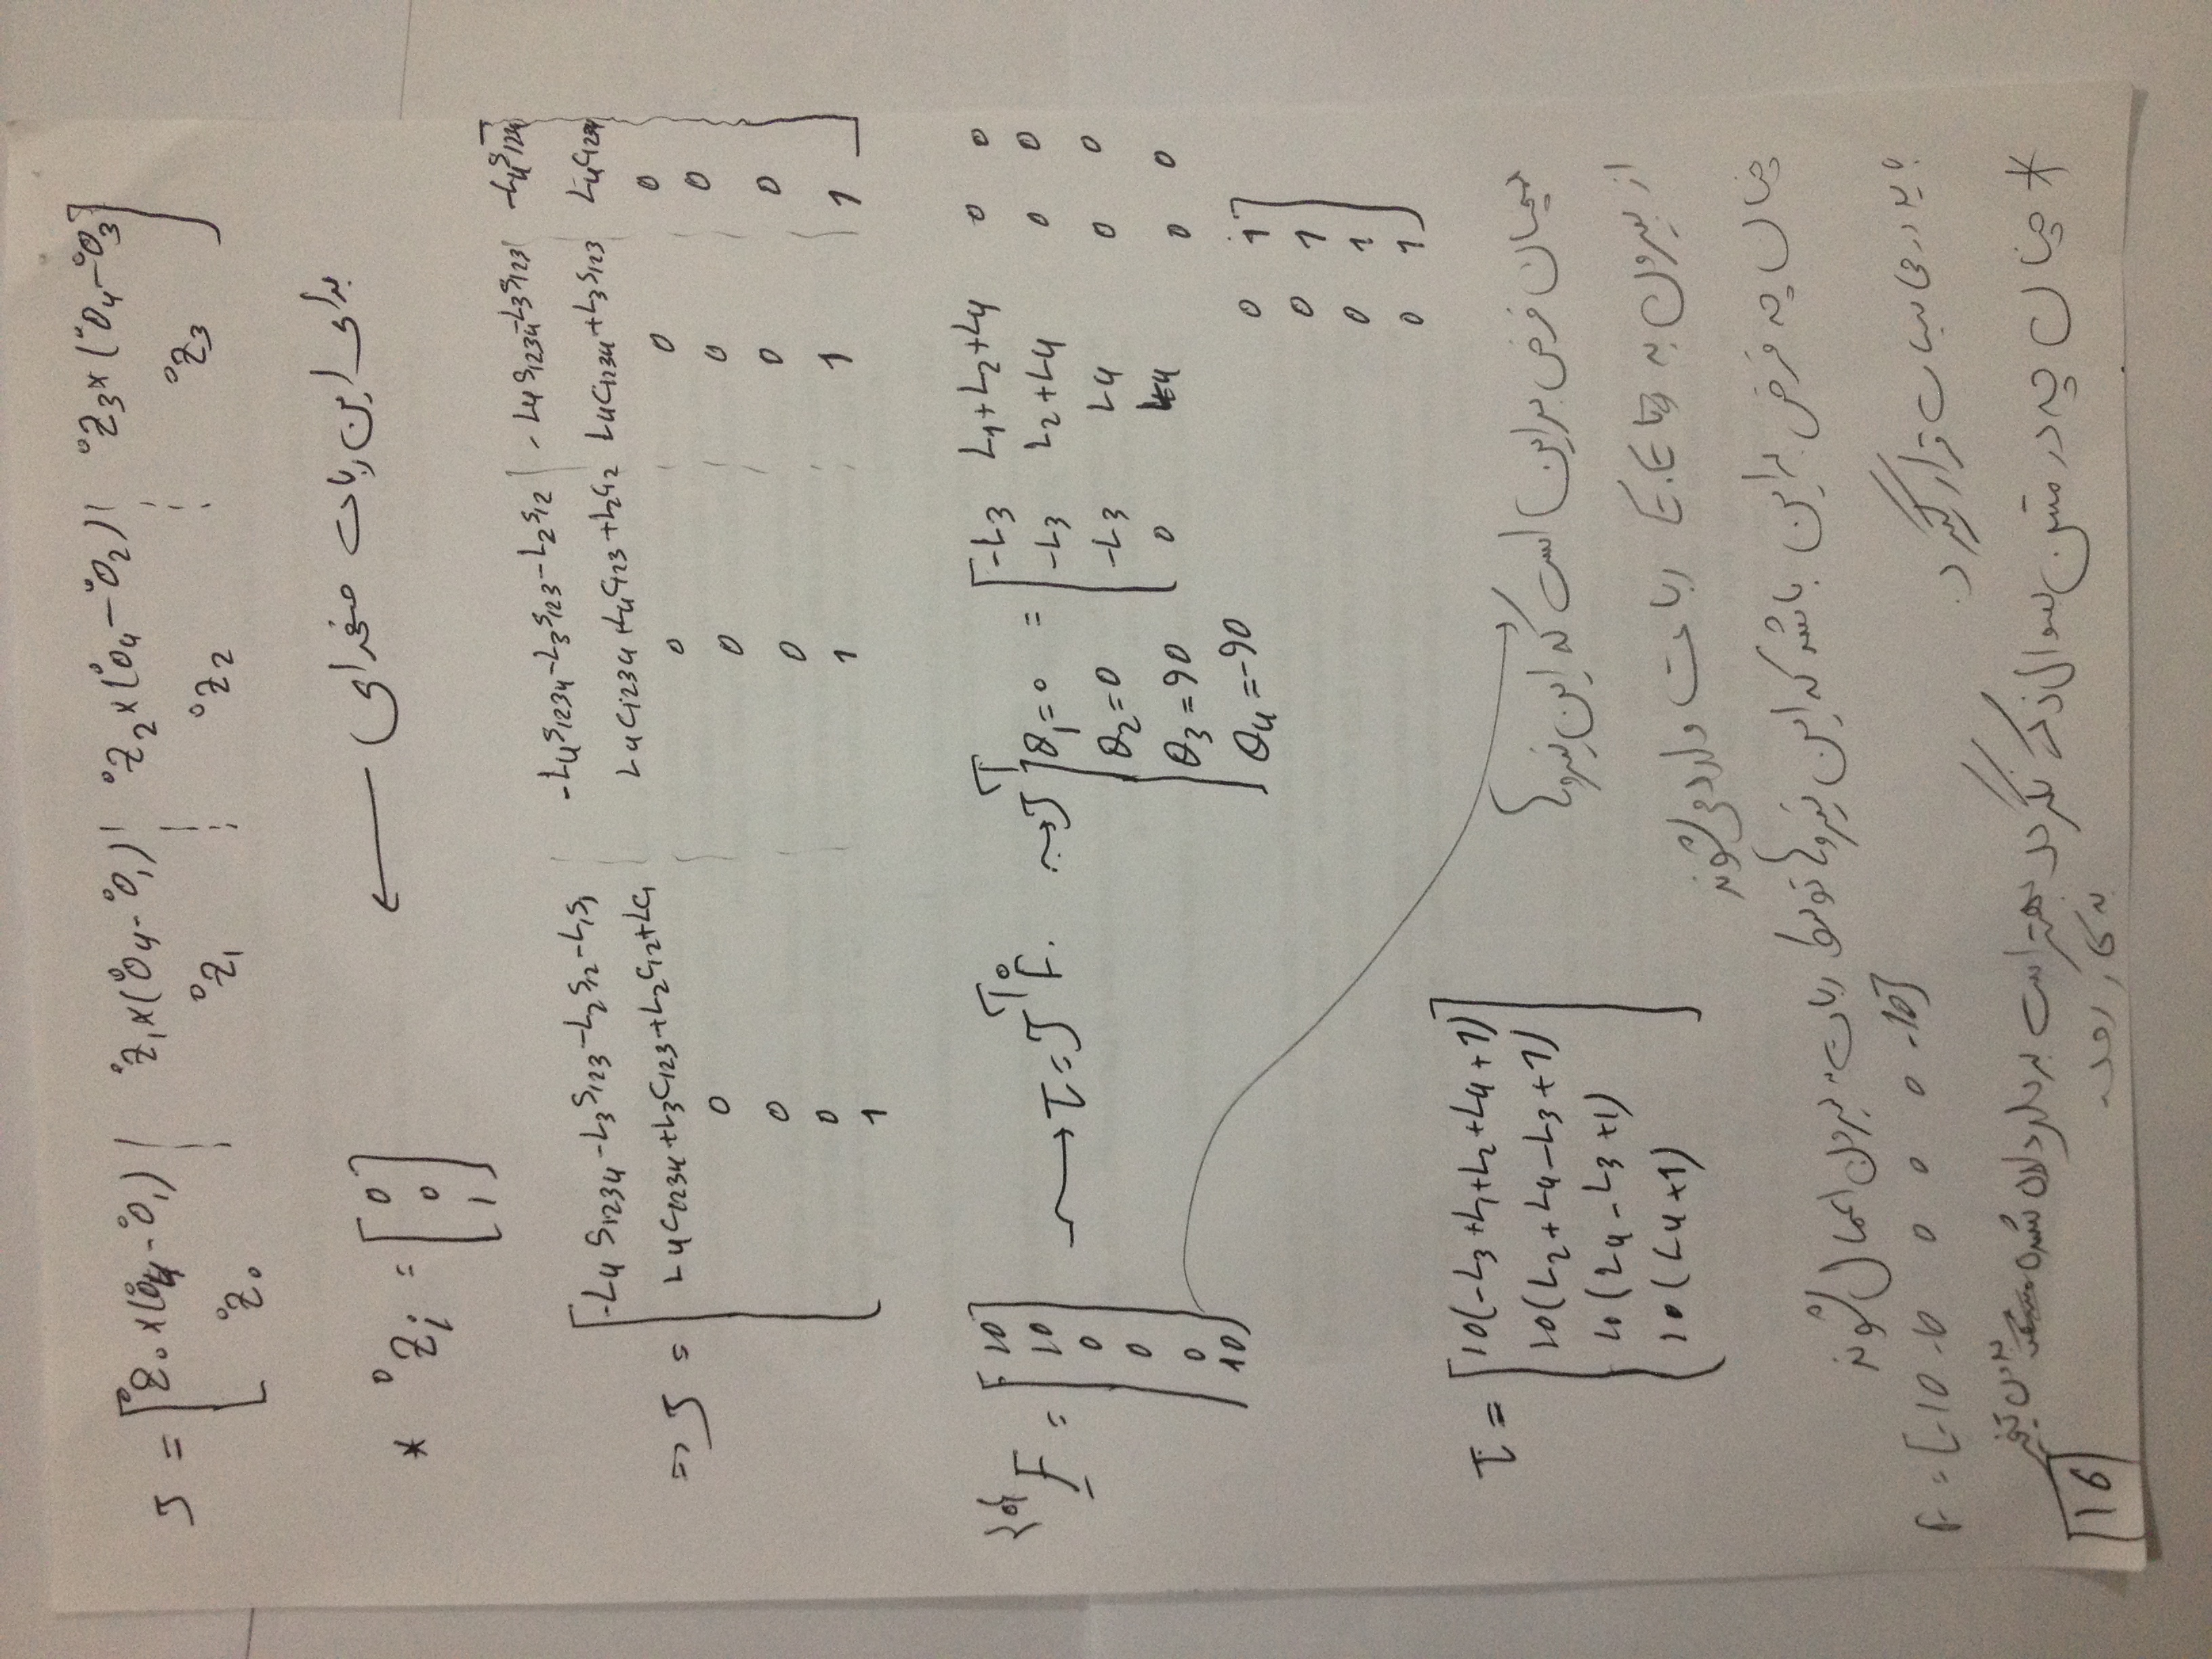 J = [ ⁰Z₀×(⁰O₄-⁰O₁) | ⁰Z₁×(⁰O₄-⁰O₁) | ⁰Z₂×(⁰O₄-⁰O₂) | ⁰Z₃×(⁰O₄-⁰O₃)
⁰Z₀ ⁰Z₁ ⁰Z₂ ⁰Z₃ ]
برای این ربات صفحه‌ای ←
* ⁰Zᵢ = [ 0
0
1 ]
⇒ J = [ -L₄S₁₂₃₄-L₃S₁₂₃-L₂S₁₂-L₁S₁ | -L₄S₁₂₃₄-L₃S₁₂₃-L₂S₁₂ | -L₄S₁₂₃₄-L₃S₁₂₃ | -L₄S₁₂₃₄
L₄C₁₂₃₄+L₃C₁₂₃+L₂C₁₂+LC₁ L₄C₁₂₃₄+L₄C₁₂₃+L₂C₁₂ L₄C₁₂₃₄+L₃S₁₂₃ L₄C₁₂₃₄
0 0 0 0
0 0 0 0
0 0 0 0
1 1 1 1 ]
F = [ 10
10
0
0
0
10 ]
→ τ = Jᵀ ⁰F.
Jᵀ | θ₁=0
θ₂=0
θ₃=90
θ₄=-90
= [ -L₃ L₁+L₂+L₄ 0 0
-L₃ L₂+L₄ 0 0
-L₃ L₄ 0 0
0 L₄ 0 0
0 1
0 1
0 1
0 1 ]
τ = [ 10(-L₃+L₁+L₂+L₄+1)
10(L₂+L₄-L₃+1)
10(L₄-L₃+1)
10(L₄+1) ]
همچنان فرض براین است که این نیروها
از بیرون به E.E ربات وارد می‌شوند
چنان چه فرض براین باشد که این نیروها توسط ربات به بیرون اعمال شوند
F = [-10 -10 0 0 0 -10]
باید در محاسبات قرار گیرد.
* چنان چه در متن سوال ذکر نگردد بهتر است بردار داده شده بدون تغییر
به کار رود.
16